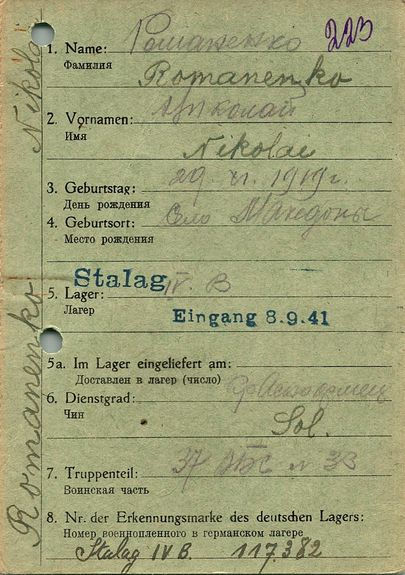 Романенко 223
1. Name:
Фамилия
Romanenko
Николай
2. Vornamen:
Имя
Nikolai
3. Geburtstag: 29. VI. 1919 г.
День рождения
4. Geburtsort: Село
Место рождения
Stalag IV. B
5. Lager:
Лагер
Eingang 8.9.41
5a. Im Lager eingeliefert am:
Доставлен в лагер (число)
6. Dienstgrad:
Чин
Sol.
7. Truppenteil: 37
Воинская часть
8. Nr. der Erkennungsmarke des deutschen Lagers:
Номер военнопленного в германском лагере
Stalag IV B. 117382
Romanenko Nikolai